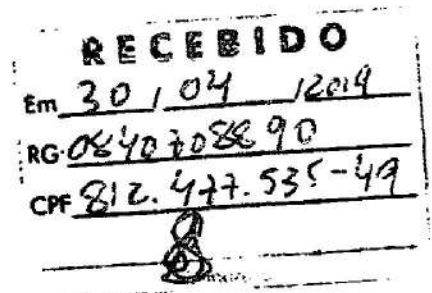 RECEBIDO
Em 30 / 04 / 2019
RG. 0840708890
CPF 812.477.535-49